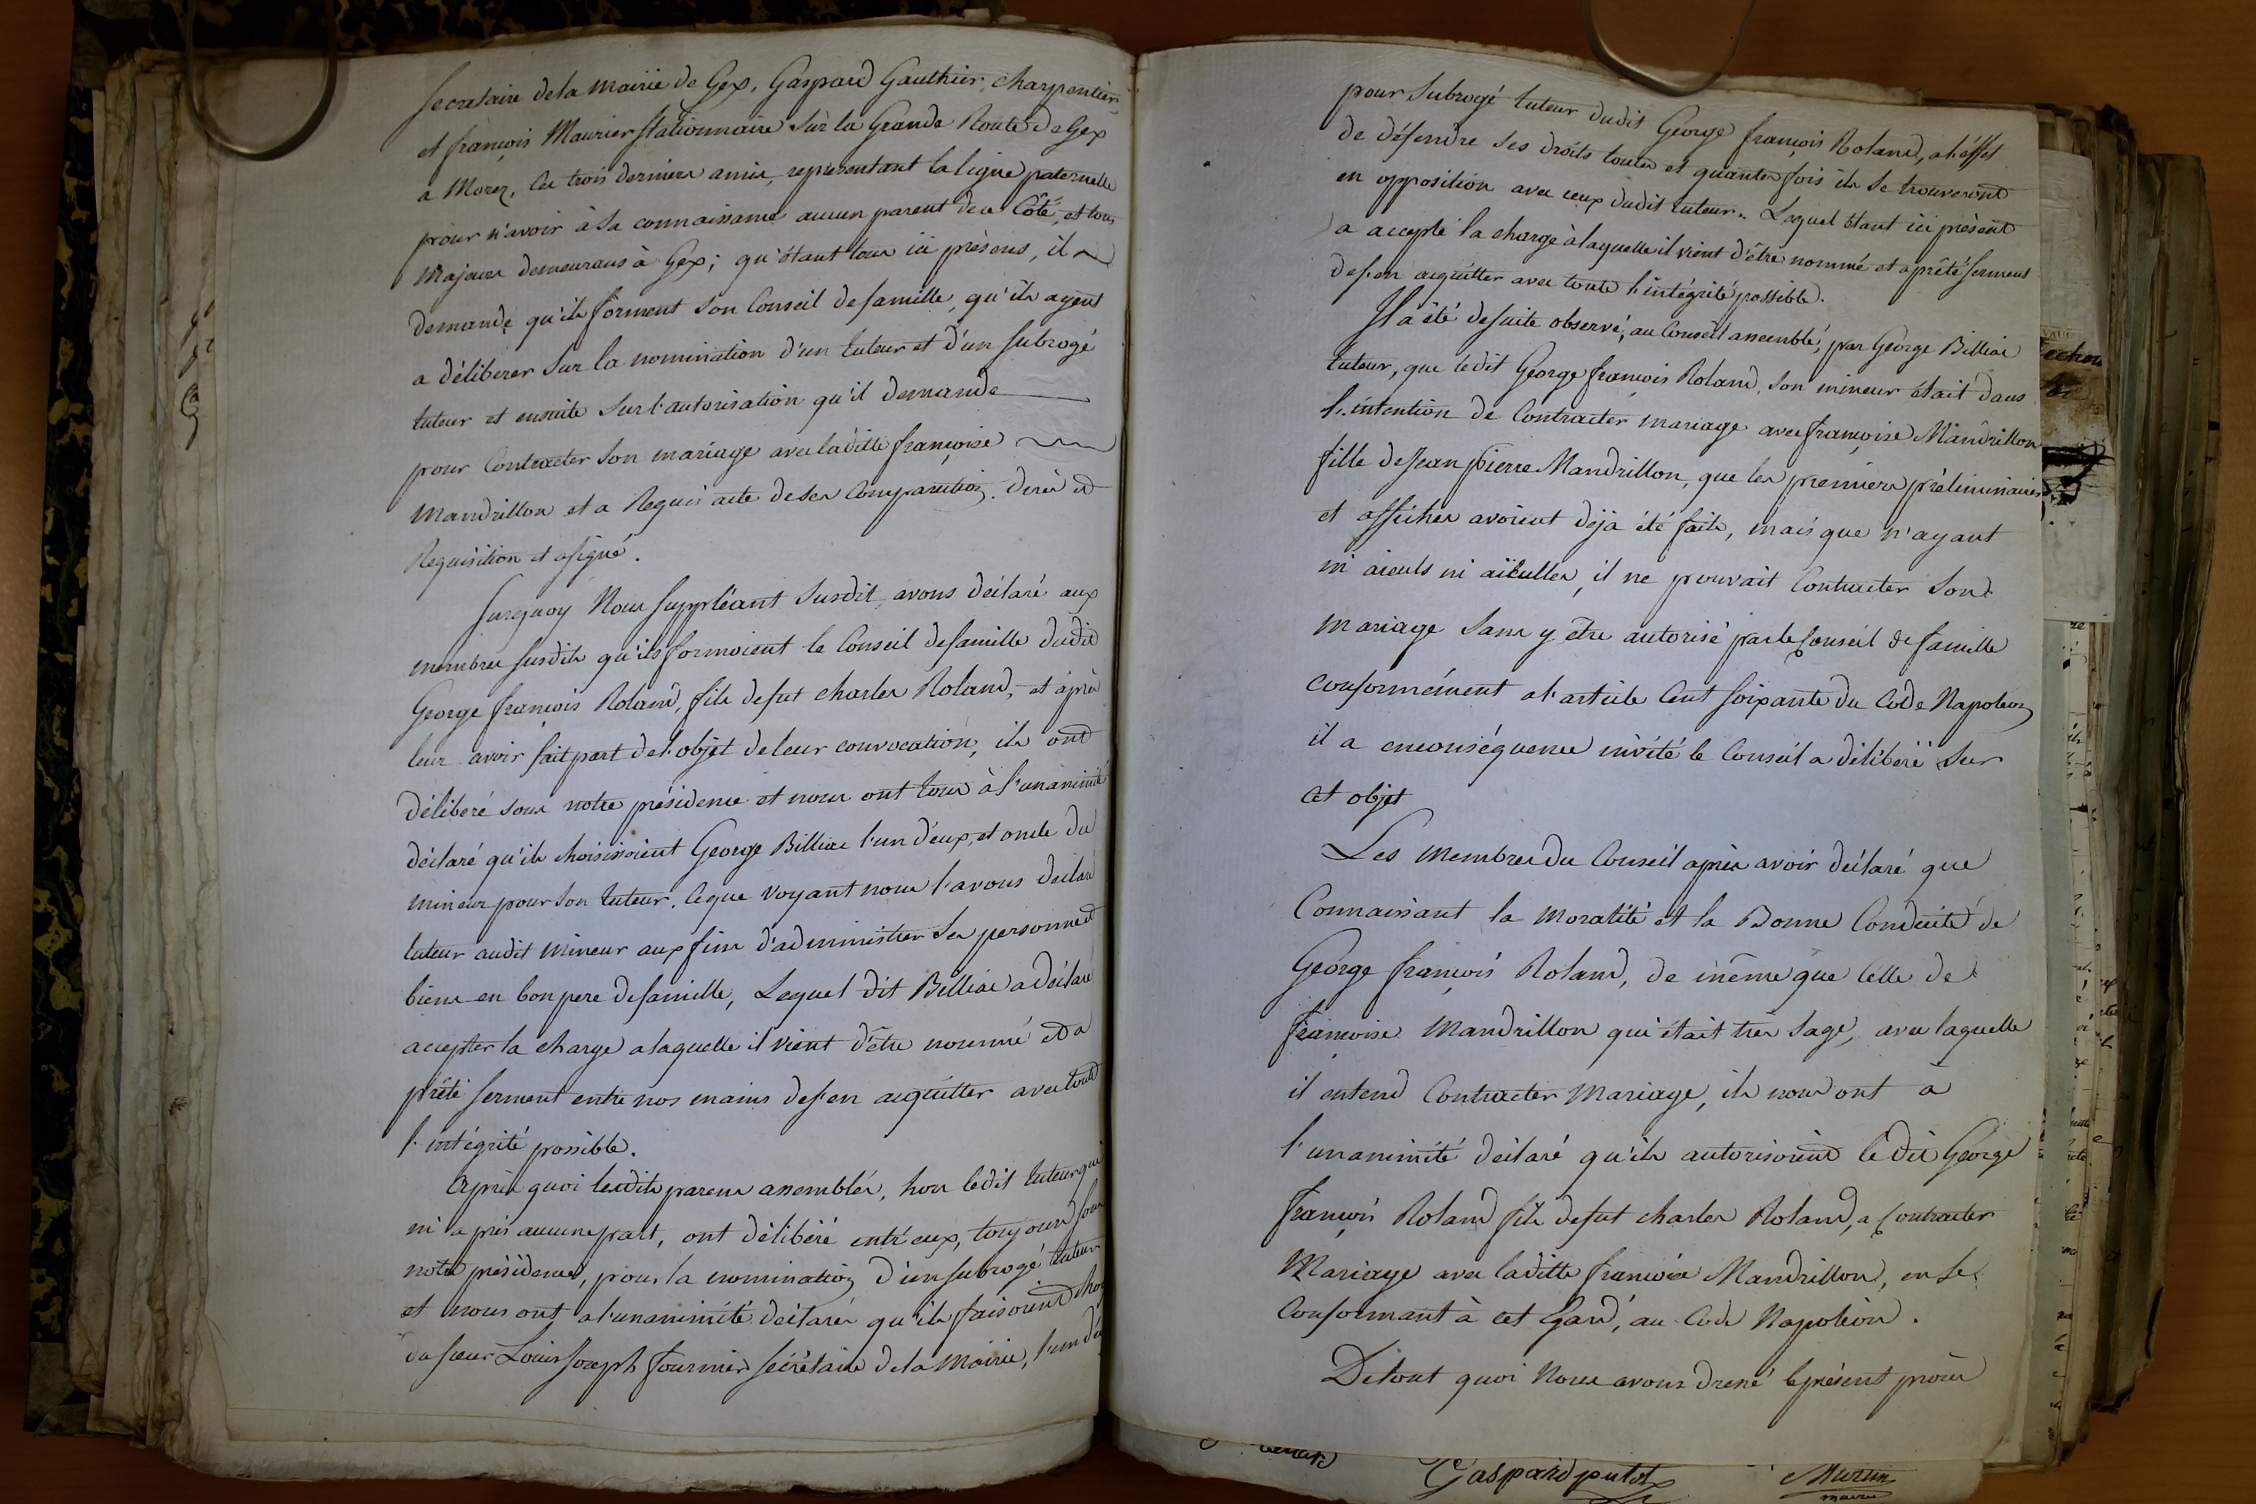 secretaire dela Mairie de Gex, Gaspard Gauthier, charpentier
et françois Maurier stationnaire sur la Grande Route de Gex
a Morez, les trois derniers amis, representant la ligne paternelle
pour n'avoir à sa connaissance aucun parent de ce Côté, et tous
Majeurs demeurans à Gex; qu'étant tous ici présens, il
demande qu'ils forment son Conseil de famille, qu'ils ayent
a délibérer sur la nomination d'un tuteur et d'un subrogé
tuteur et ensuite sur l'autorisation qu'il demande
pour Contracter son mariage avec laditte françoise
Mandrillon et a Requis acte de ses Comparution, dires et
Requisition et a signé.
Surquoy Nous suppléant susdit, avons déclaré aux
membres susdits qu'ils formoient le Conseil de famille dudit
George françois Roland, fils de fut charles Roland, et après
leur avoir fait part de l'objet de leur convocation, ils ont
délibéré sous notre présidence et nous ont tous à l'unanimité
déclaré qu'ils choisissoient George Billiac l'un d'eux, et oncle du
mineur pour son tuteur. Ceque voyant nous l'avons déclaré
tuteur audit mineur aux fins d'administrer ses personne et
biens en bon pere de famille, Lequel dit Billiac a déclaré
accepter la charge a laquelle il vient d'être nommé et a
prêté serment entre nos mains de s'en acquitter avec toute
l'intégrité possible.
Après quoi lesdits parens assemblés, hors ledit tuteur qui
ni a pris aucune part, ont délibéré entr'eux, toujours sous
notre présidence, pour la nomination d'un subrogé tuteur
et nous ont a l'unanimité déclarés qu'ils faisoient choix
du sieur Louis Joseph Fournier secrétaire de la Mairie, l'un d'eux
pour subrogé tuteur dudit George françois Roland, a l'effet
de défendre ses droits toutes et quantes fois ils se trouveront
en opposition avec ceux dudit tuteur. Lequel étant ici présent
a accepté la charge à laquelle il vient d'être nommé et a prêté serment
de s'en acquitter avec toute l'intégrité possible.
Il a été de suite observé, au Conseil assemblé, par George Billiac
tuteur, que ledit George françois Roland, son mineur était dans
l'intention de Contracter mariage avec françoise Mandrillon
fille de Jean pierre Mandrillon, que les premiers préliminaires
et affiches avoient déjà été faits, mais que n'ayant
ni aieuls ni aïeulles, il ne pouvait Contracter son
mariage sans y être autorisé par le Conseil de famille
conformément a l'article Cent soixante du Code Napoleon
il a en conséquence invité le Conseil a délibéré sur
cet objet
Les Membres du Conseil après avoir déclaré que
Connaissant la Moralité et la Bonne Conduite de
George françois Roland, de même que celle de
françoise Mandrillon qui était très sage, avec laquelle
il entend Contracter Mariage, ils nous ont à
l'unanimité déclaré qu'ils autorisoient ledit George
françois Roland fils de fut charles Roland, a Contracter
Mariage avec laditte françoise Mandrillon, en se
Conformant à cet Egard, au Code Napoléon.
De tout quoi Nous avons dressé le présent procès
Gaspard putod
maire